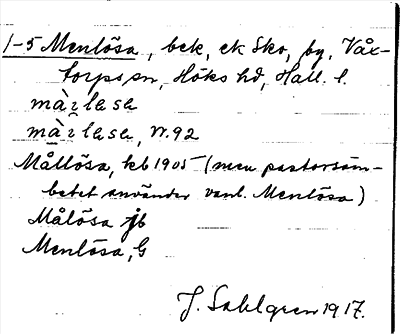 1-5 Menlösa, bek, ek Sko, by, Våx-
torps sn, Höks hd, Hall. l.
mà2lasa
mà2lasa, Nr. 92
Mållösa, kb 1905 (men pastorsäm-
betet använder vanl. Menlösa)
Målösa jb
Menlösa, G
J. Sahlgren 1917.